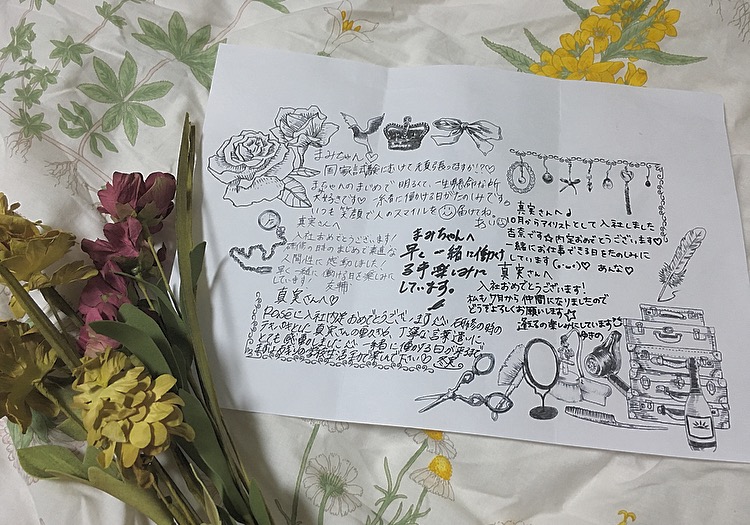 まみちゃん♡
国家試験にむけて頑張ってますか!?♡
まみちゃんのまじめで明るくて、一生懸命な所
大好きです♡ 一緒に働ける日がたのしみです。
いつも笑顔で人のスマイルを届けてね
あい
真実さんへ
入社おめでとうございます!
研修の時のまじめで素直な
人間性に感動しました!
早く一緒に働ける日を楽しみに
しています!
まみちゃんへ
早く一緒に働け
る事楽しみに
しています。
真実さんへ♪
10月からアイリストとして入社しました
杏奈です☆内定おめでとうございます♡
一緒にお仕事できる日をたのしみに
しています あんな♡
真実さんへ
入社おめでとうございます!
私も7月から仲間になりましたので
どうぞよろしくお願いします☆
逢えるの楽しみにしています☆
ゆきの
真実さんへ♡
Roseに入社内定おめでとうございます 研修の時の
とても感動しました 一緒に働ける日が来るまで